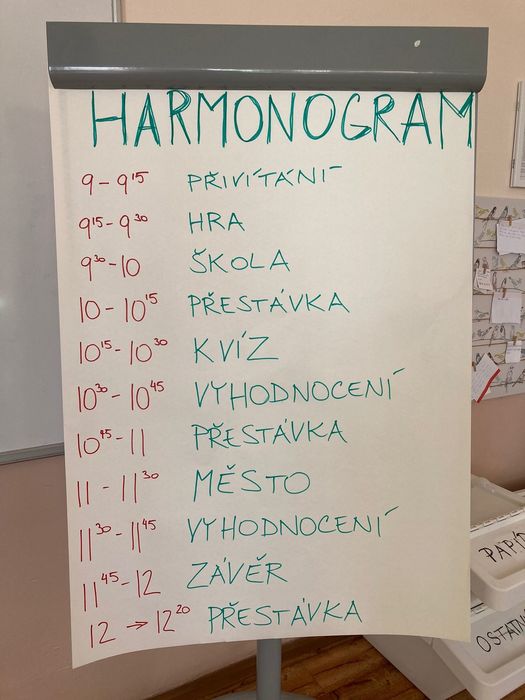 HARMONOGRAM
9 - 9¹⁵ PŘIVÍTÁNÍ
9¹⁵ - 9³⁰ HRA
9³⁰ - 10 ŠKOLA
10 - 10¹⁵ PŘESTÁVKA
10¹⁵ - 10³⁰ KVÍZ
10³⁰ - 10⁴⁵ VYHODNOCENÍ
10⁴⁵ - 11 PŘESTÁVKA
11 - 11³⁰ MĚSTO
11³⁰ - 11⁴⁵ VYHODNOCENÍ
11⁴⁵ - 12 ZÁVĚR
12 → 12²⁰ PŘESTÁVKA
PAPÍR
OSTATN